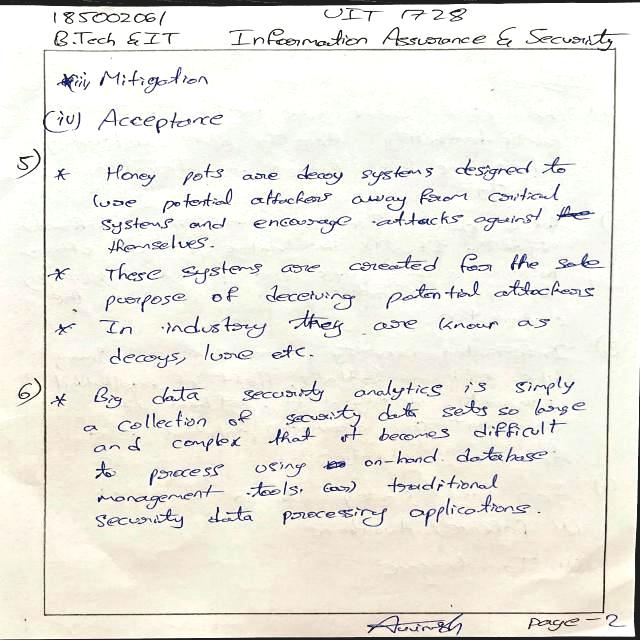 185002061 UIT 1728
B.Tech & IT Information Assurance & Security
iii) Mitigation
(iv) Acceptance
5) * Honey pots are decoy systems designed to
lure potential attackers away from critical
systems and encourage attacks against the
themselves.
* These systems are created for the sole
purpose of deceiving potential attackers
* In industry they are known as
decoys, lure etc.
6) * Big data security analytics is simply
a collection of security data sets so large
and complex that it becomes difficult
to process using on-hand database
management tools. (or) traditional
security data processing applications.
page - 2